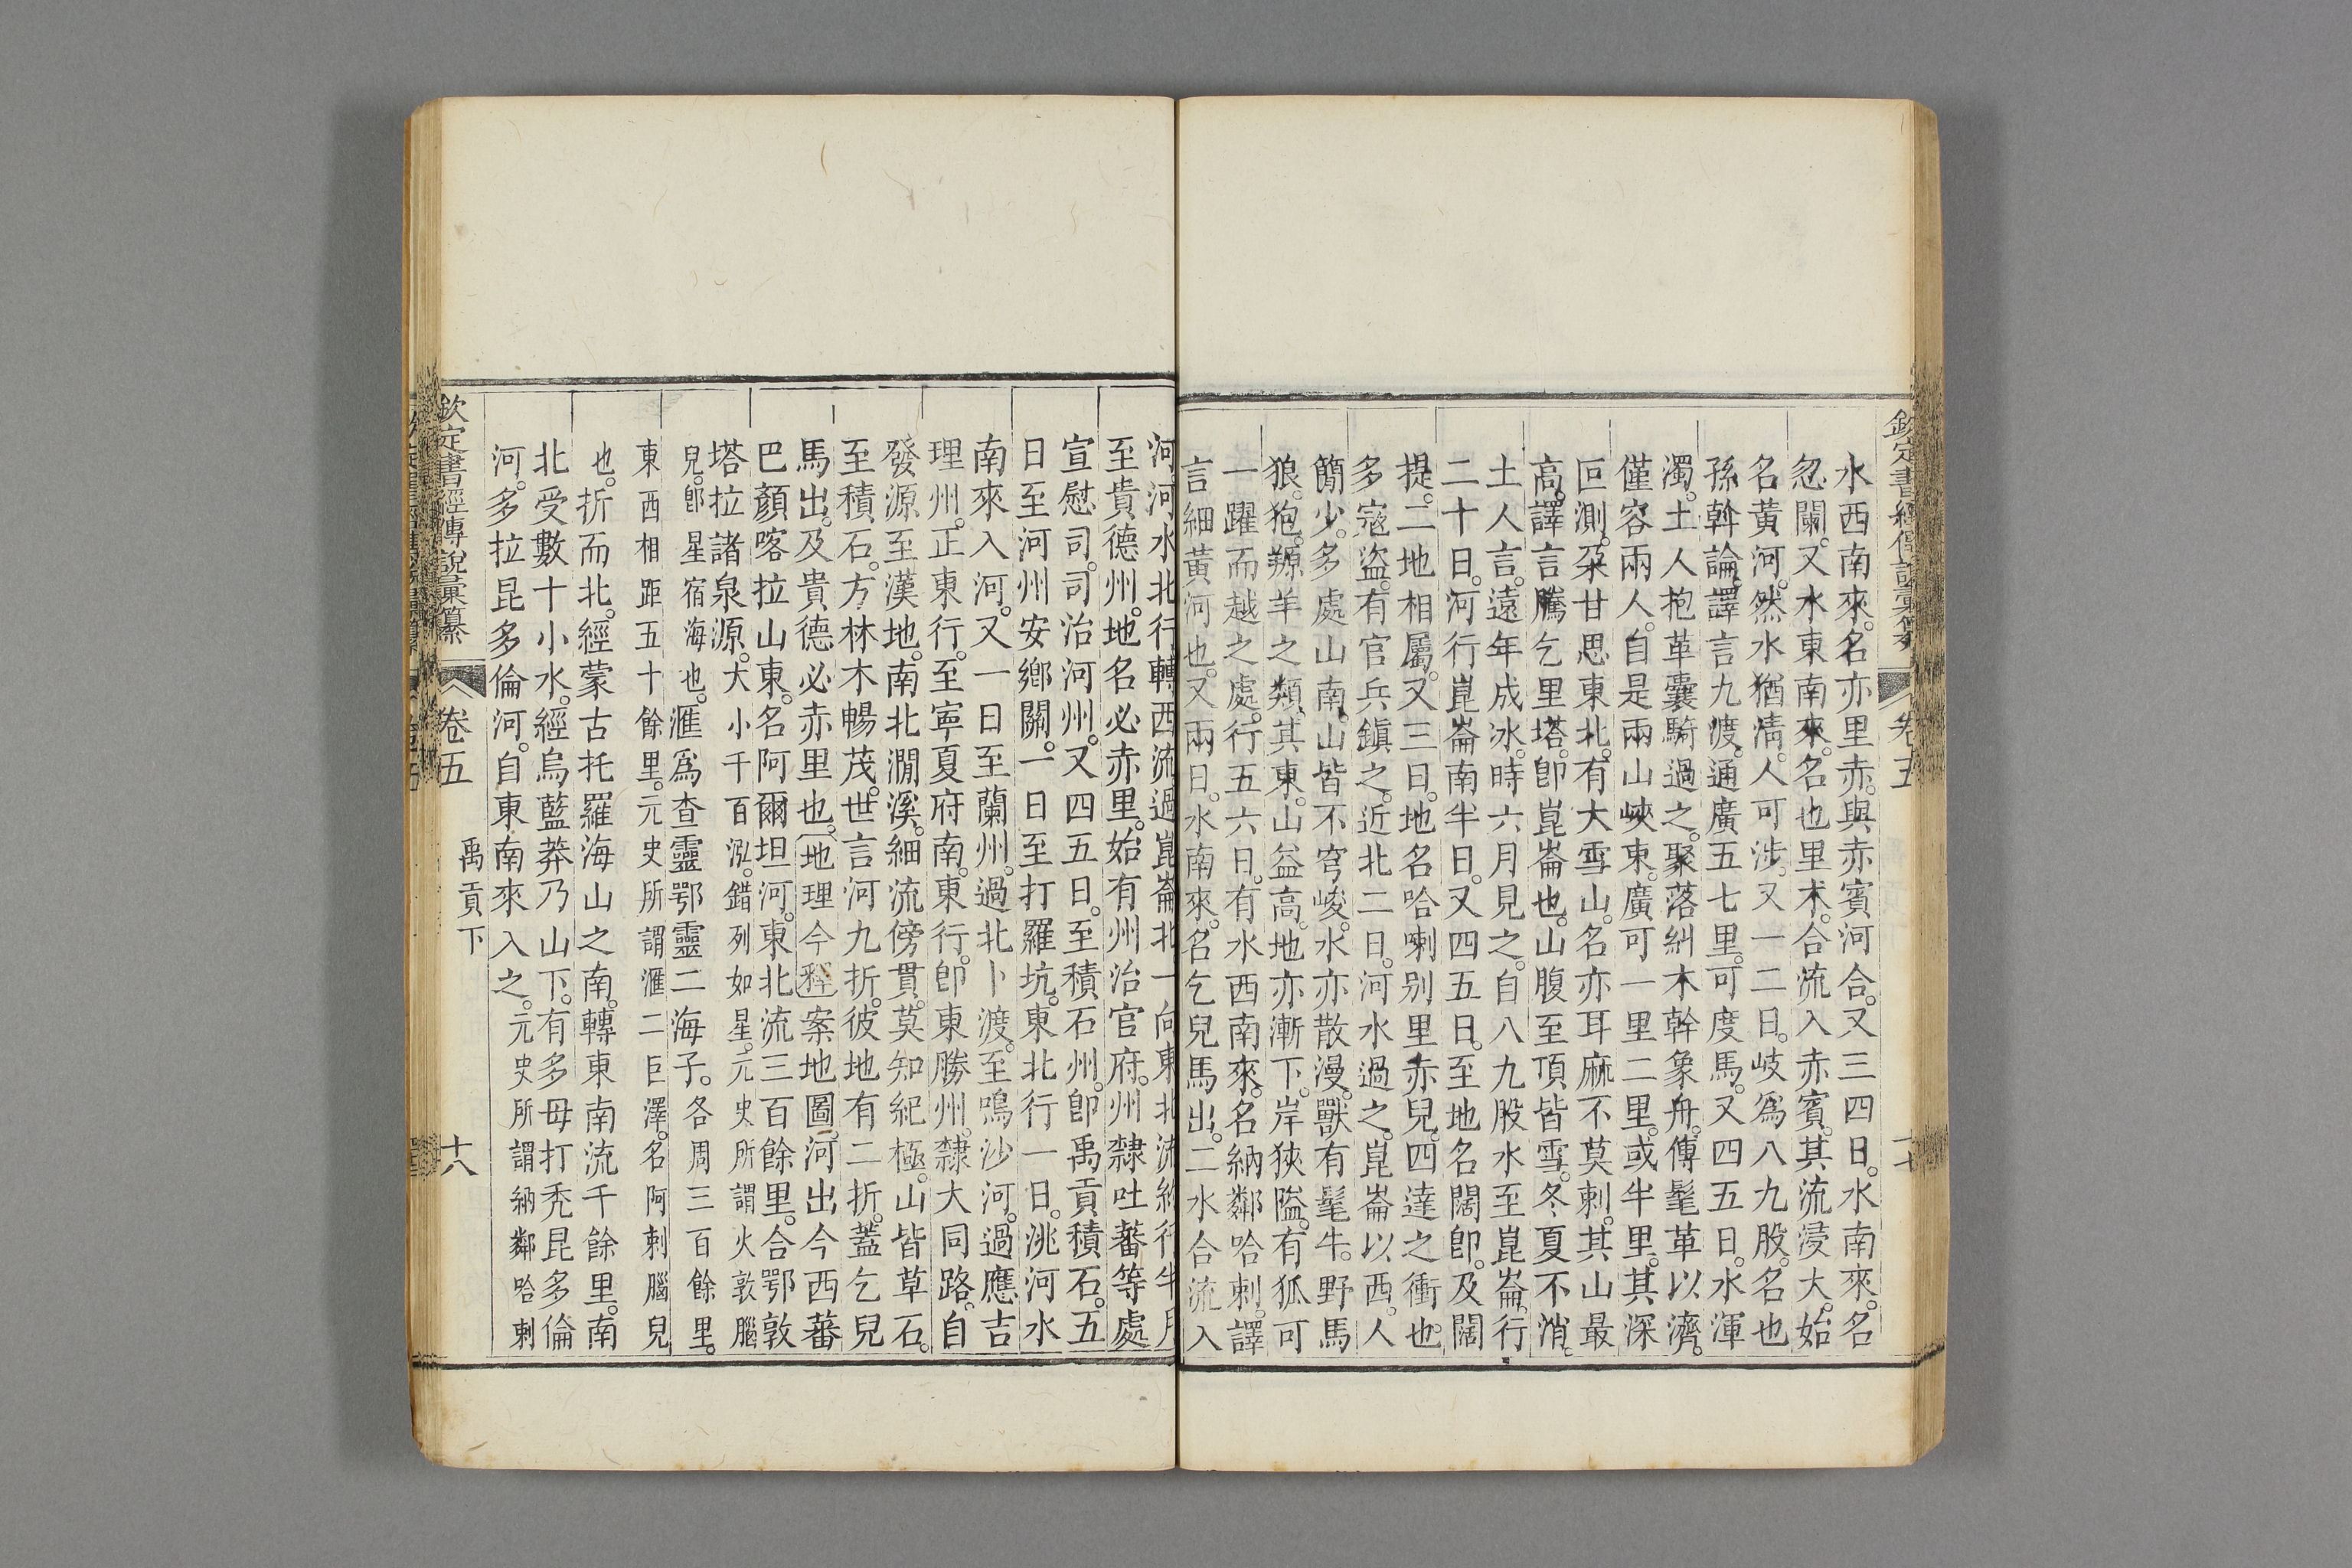 欽定書經傳說彙纂 卷五
水西南來。名亦里赤。與赤賓河合。又三四日。水南來。名
忽闌。又水東南來。名也里朮。合流入赤賓。其流浸大。始
名黃河。然水猶清。人可涉。又一二日。岐爲八九股。名也
孫斡論。譯言九渡。通廣五七里。可度馬。又四五日。水渾
濁。土人抱革囊騎過之。聚落糾木幹象舟。傅髦革以濟。
僅容兩人。自是兩山峽東。廣可一里二里。或半里。其深
叵測。朶甘思東北。有大雪山。名亦耳麻不莫剌。其山最
高。譯言騰乞里塔。卽崑崙也。山腹至頂皆雪。冬夏不消。
土人言。遠年成冰。時六月見之。自八九股水至崑崙。行
二十日。河行崑崙南半日。又四五日。至地名闊卽。及闊
提。二地相屬。又三日。地名哈喇别里赤兒。四達之衝也。
多寇盜。有官兵鎭之。近北二日。河水過之。崑崙以西。人
簡少。多處山南。山皆不穹峻。水亦散漫。獸有髦牛。野馬
狼。狍。羱羊之類。其東。山益高。地亦漸下。岸狹隘。有狐可
一躍而越之處。行五六日。有水西南來。名納鄰哈剌。譯
言細黃河也。又兩日。水南來。名乞兒馬出。二水合流入
河河水北行轉西流過崑崙北一向東北流約行半月
至貴德州。地名必赤里。始有州治官府。州隸吐蕃等處
宣慰司。司治河州。又四五日。至積石州。卽禹貢積石。五
日至河州安鄉關。一日至打羅坑。東北行一日。洮河水
南來入河。又一日至蘭州。過北卜渡。至鳴沙河。過應吉
理州。正東行。至寧夏府南。東行。卽東勝州。隸大同路。自
發源至漢地。南北澗溪。細流傍貫。莫知紀極。山皆草石。
至積石。方林木暢茂。世言河九折。彼地有二折。蓋乞兒
馬出。及貴德必赤里也。地理今釋案地圖。河出今西蕃
巴顏喀拉山東。名阿爾坦河。東北流三百餘里。合鄂敦
塔拉諸泉源。大小千百泓。錯列如星。元史所謂火敦腦
兒。卽星宿海也。滙爲查靈鄂靈二海子。各周三百餘里。
東西相距五十餘里。元史所謂滙二巨澤。名阿剌腦兒
也。折而北。經蒙古托羅海山之南。轉東南流千餘里。南
北受數十小水。經烏藍莽乃山下。有多母打禿昆多倫
河。多拉昆多倫河。自東南來入之。元史所謂納鄰哈剌
欽定書經傳說彙纂 卷五 禹貢下 十八